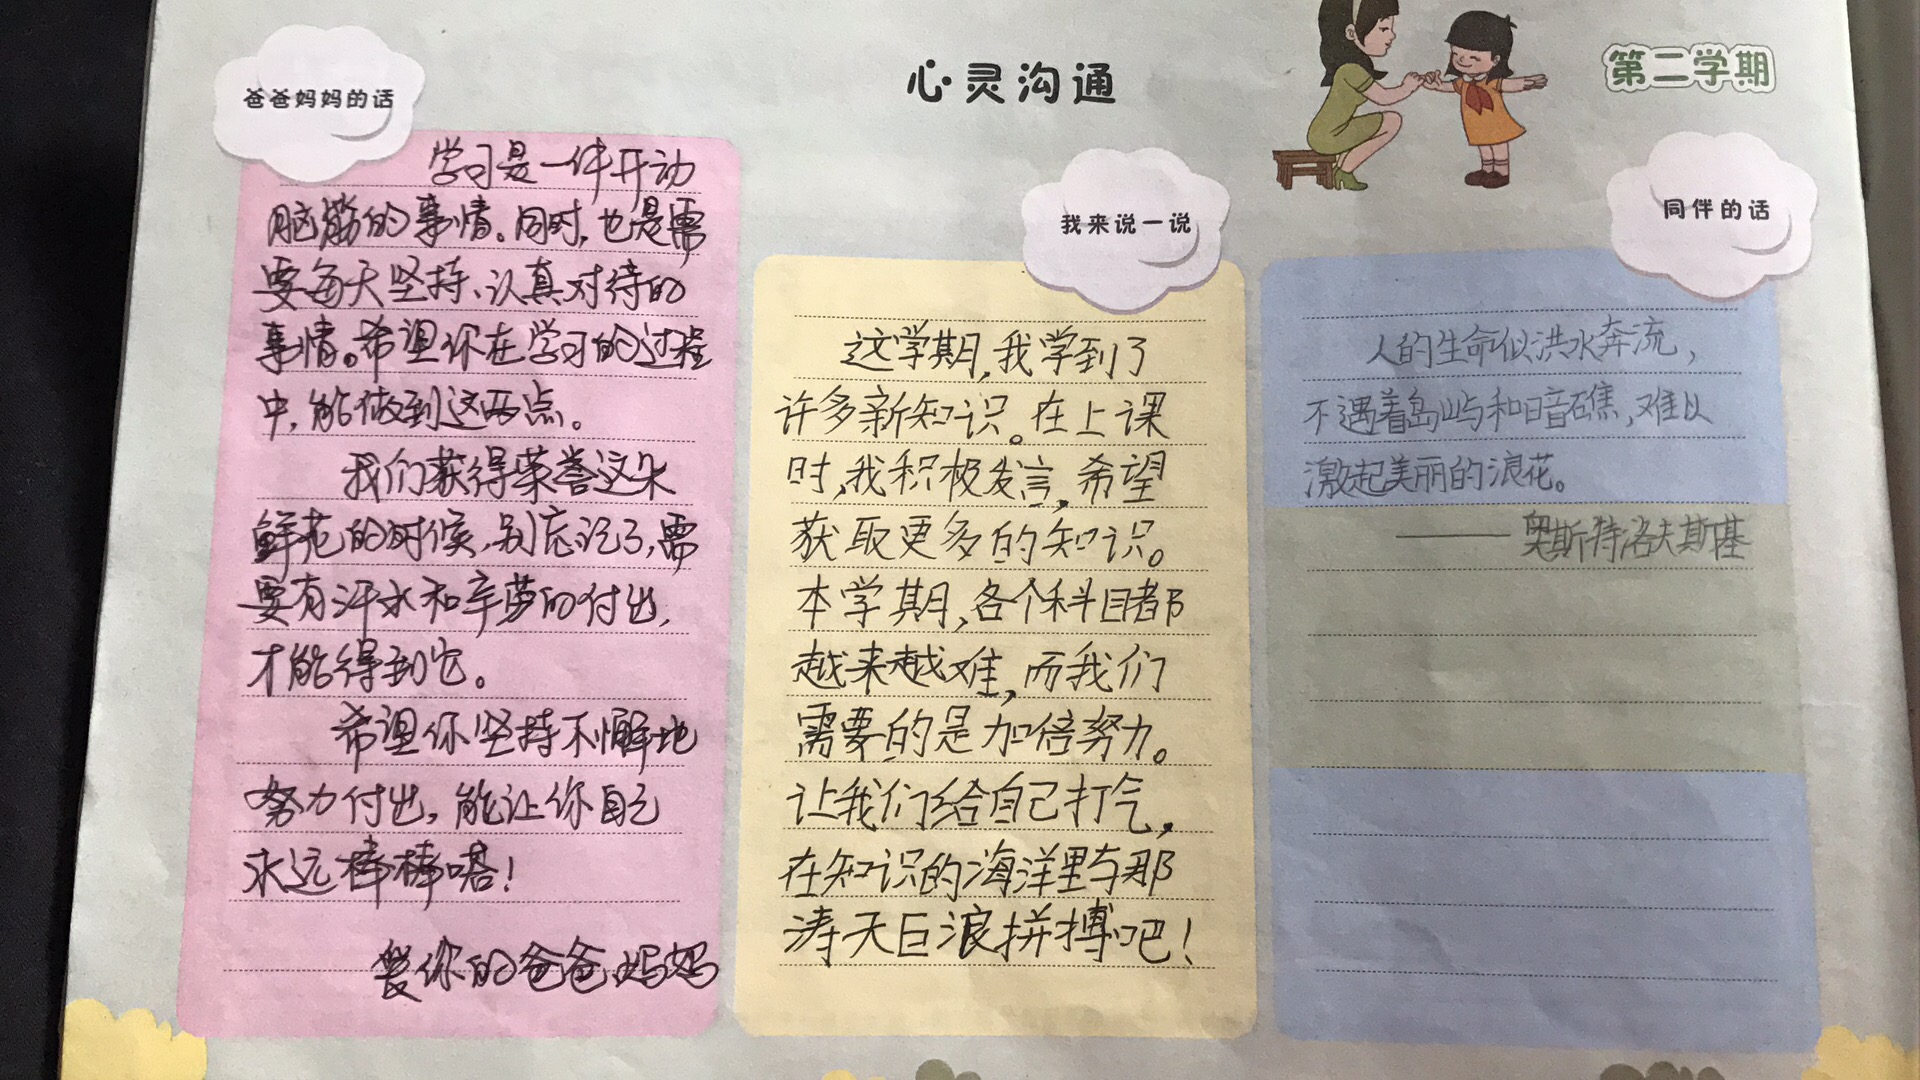 心灵沟通
第二学期
爸爸妈妈的话
学习是一件开动
脑筋的事情。同时,也是需
要每天坚持、认真对待的
事情。希望你在学习的过程
中,能做到这两点。
我们获得荣誉这朵
鲜花的时候,别忘记了,需
要有汗水和辛劳的付出,
才能得到它。
希望你坚持不懈地
努力付出,能让你自己
永远棒棒嗒!
爱你的爸爸妈妈
我来说一说
这学期,我学到了
许多新知识。在上课
时,我积极发言,希望
获取更多的知识。
本学期,各个科目都
越来越难,而我们
需要的是加倍努力。
让我们给自己打气,
在知识的海洋里与那
涛天巨浪拼搏吧!
同伴的话
人的生命似洪水奔流,
不遇着岛屿和暗礁,难以
激起美丽的浪花。
——奥斯特洛夫斯基